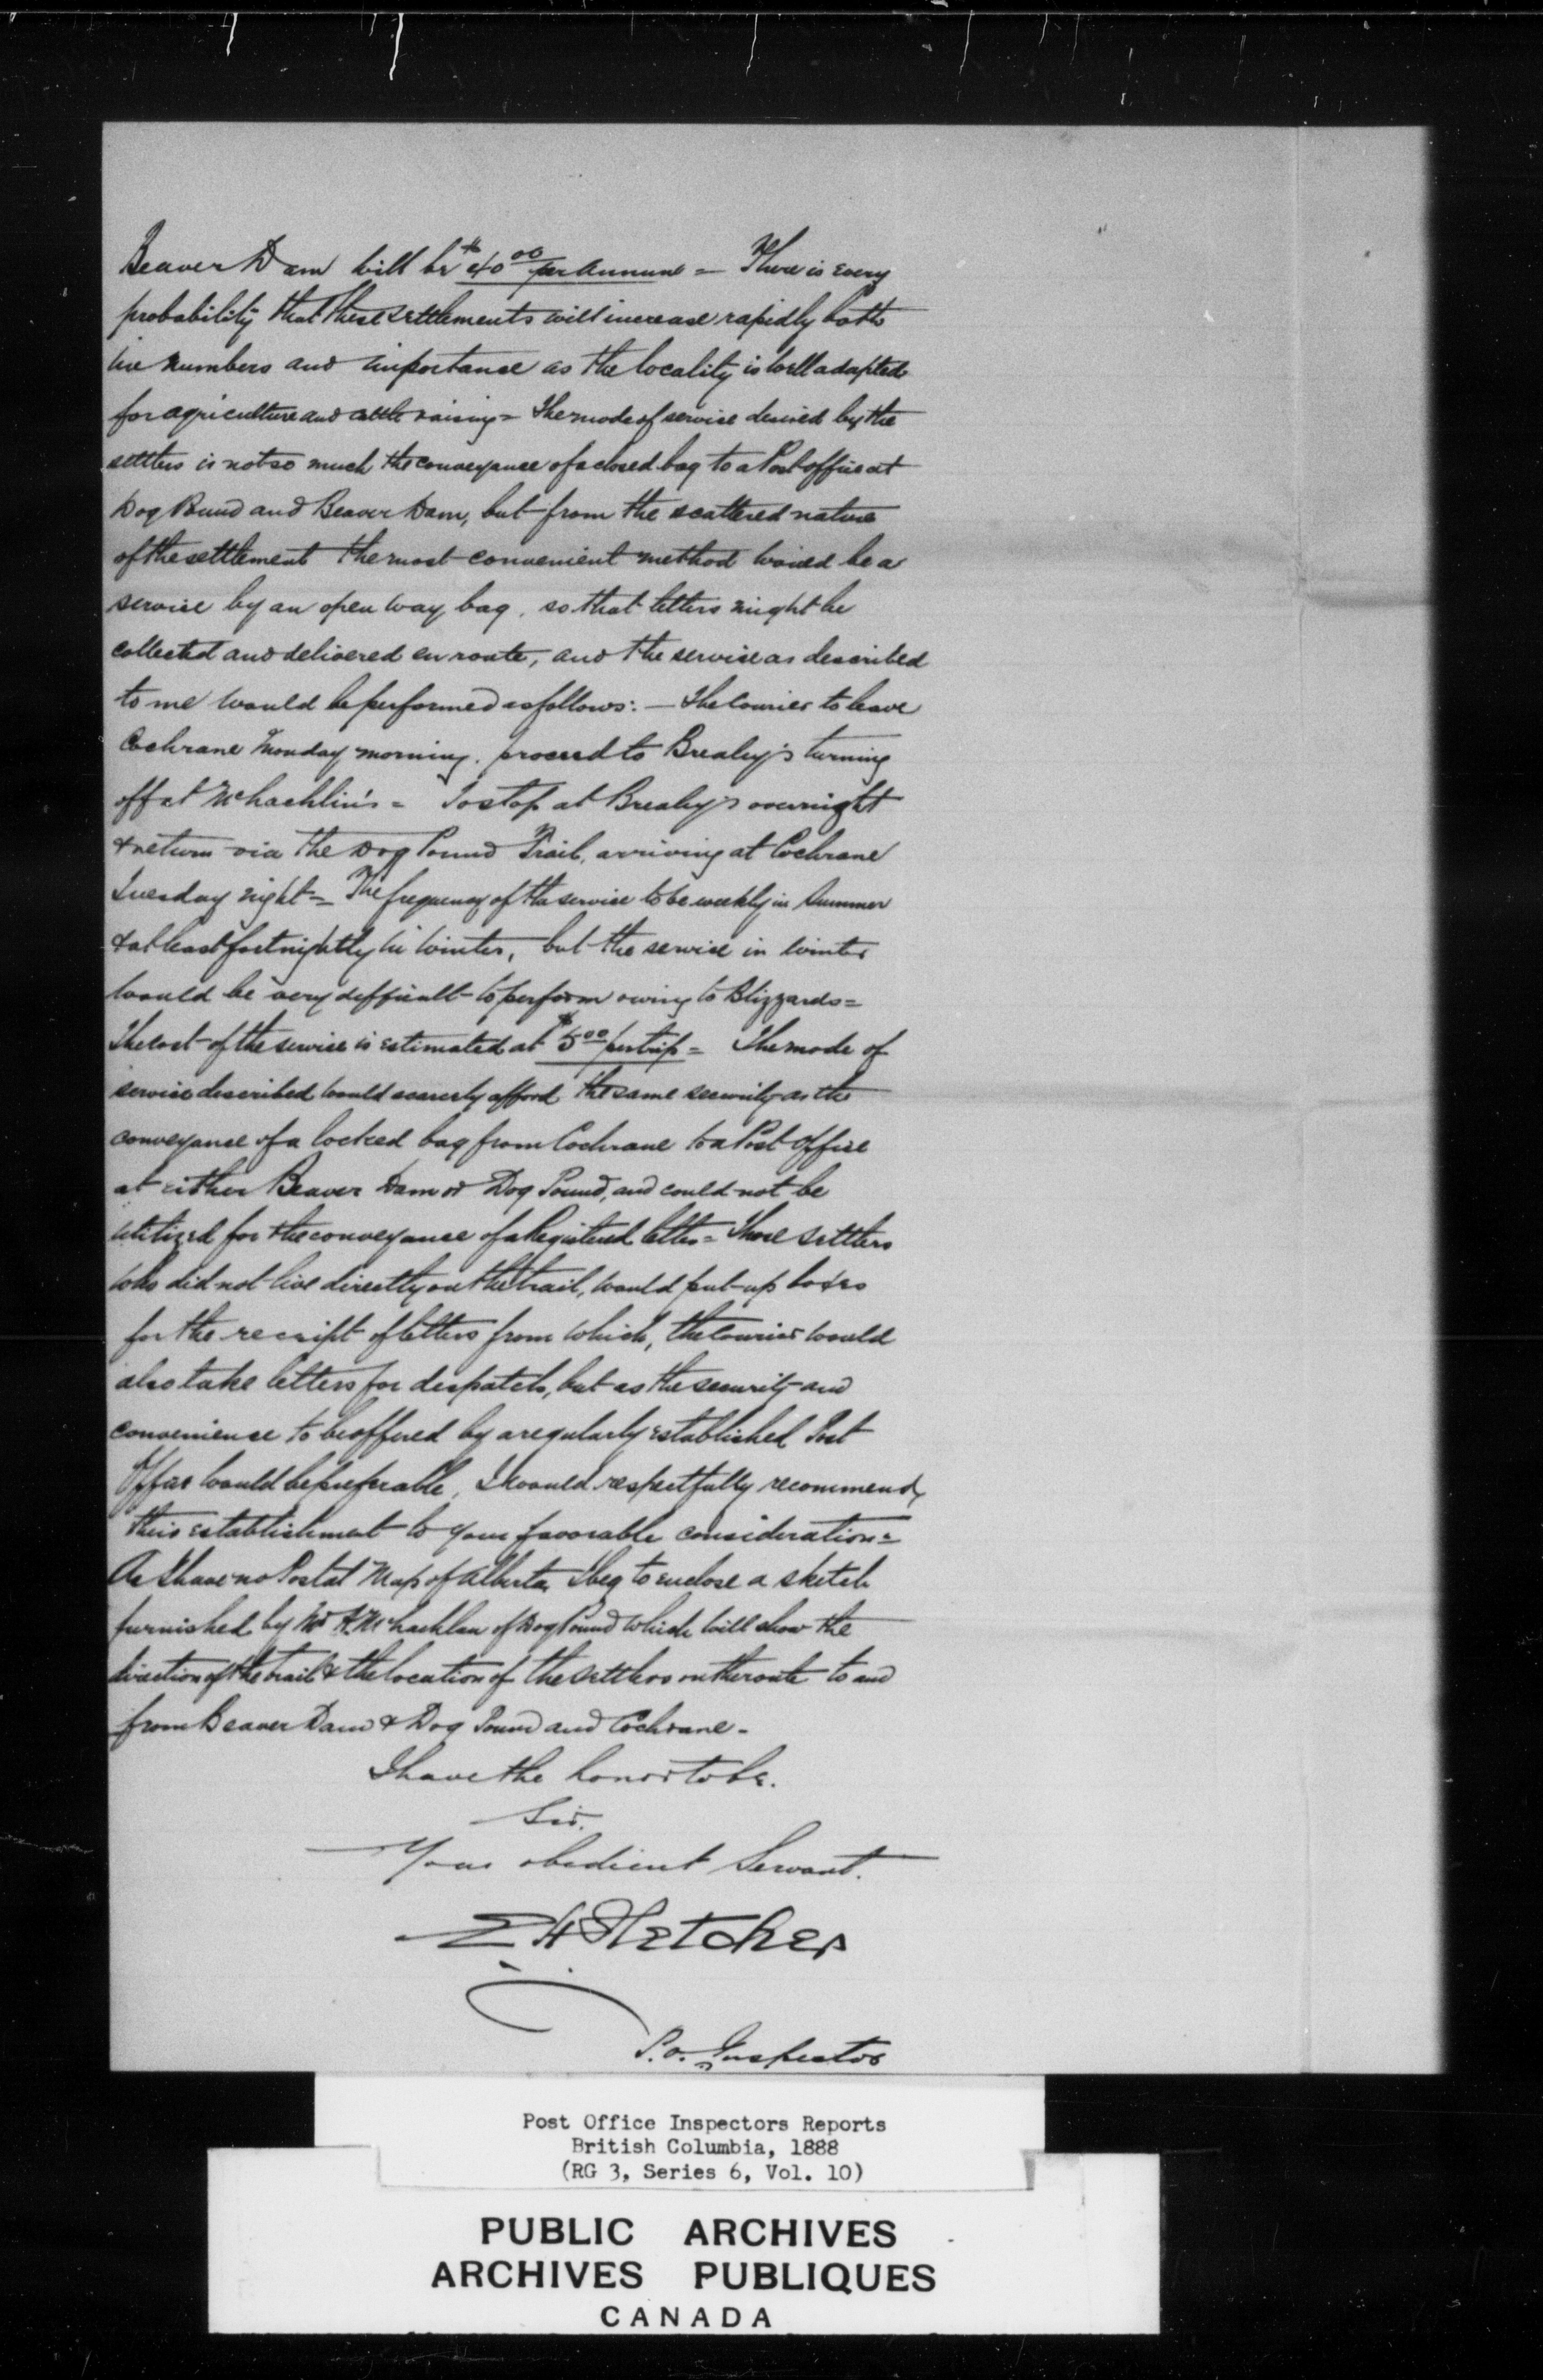 Beaver Dam will be $40 00 per annum = There is every
probability that these settlements will increase rapidly both
in numbers and importance as the locality is well adapted
for agriculture and cattle raising = The mode of service desired by the
settlers is not so much the conveyance of a closed bag to a Post office at
Dog Pound and Beaver Dam, but from the scattered nature
of the settlement the most convenient method would be a
service by an open way bag, so that letters might be
collected and delivered en route, and the service as described
to me would be performed as follows: — The Courier to leave
Cochrane Monday morning, proceed to Brealey's turning
off at McLachlin's = To stop at Brealey's overnight
& return via the Dog Pound Trail, arriving at Cochrane
Tuesday night = The frequency of the service to be weekly in Summer
& at least fortnightly in Winter, but the service in winter
would be very difficult to perform owing to Blizzards =
The cost of the service is estimated at $5 00 per trip = The mode of
service described would scarcely afford the same security as the
conveyance of a locked bag from Cochrane to a Post Office
at either Beaver Dam or Dog Pound, and could not be
utilized for the conveyance of a Registered letter = Those settlers
who did not live directly on the trail, would put up boxes
for the receipt of letters from which, the Courier would
also take letters for despatch, but as the security and
convenience to be offered by a regularly established Post
Office would be preferable, I would respectfully recommend,
their establishment to your favorable consideration =
As I have no Postal Map of Alberta, I beg to enclose a sketch
furnished by Mr McLachlan of Dog Pound which will show the
direction of the trail & the location of the settlers on the route to and
from Beaver Dam & Dog Pound and Cochrane -
I have the honor to be.
Sir.
Your obedient Servant.
E H Fletcher
P.O. Inspector
Post Office Inspectors Reports
British Columbia, 1888
(RG 3, Series 6, Vol. 10)
PUBLIC ARCHIVES
ARCHIVES PUBLIQUES
CANADA